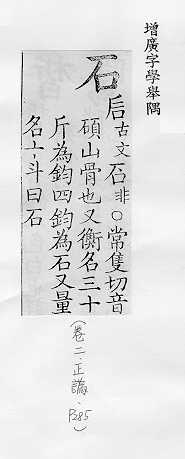 增廣字學舉隅
石
后古文石非○常隻切音
碩山骨也又衡名三十
斤為鈞四鈞為石又量
名十斗曰石
(卷二.正譌.P285)